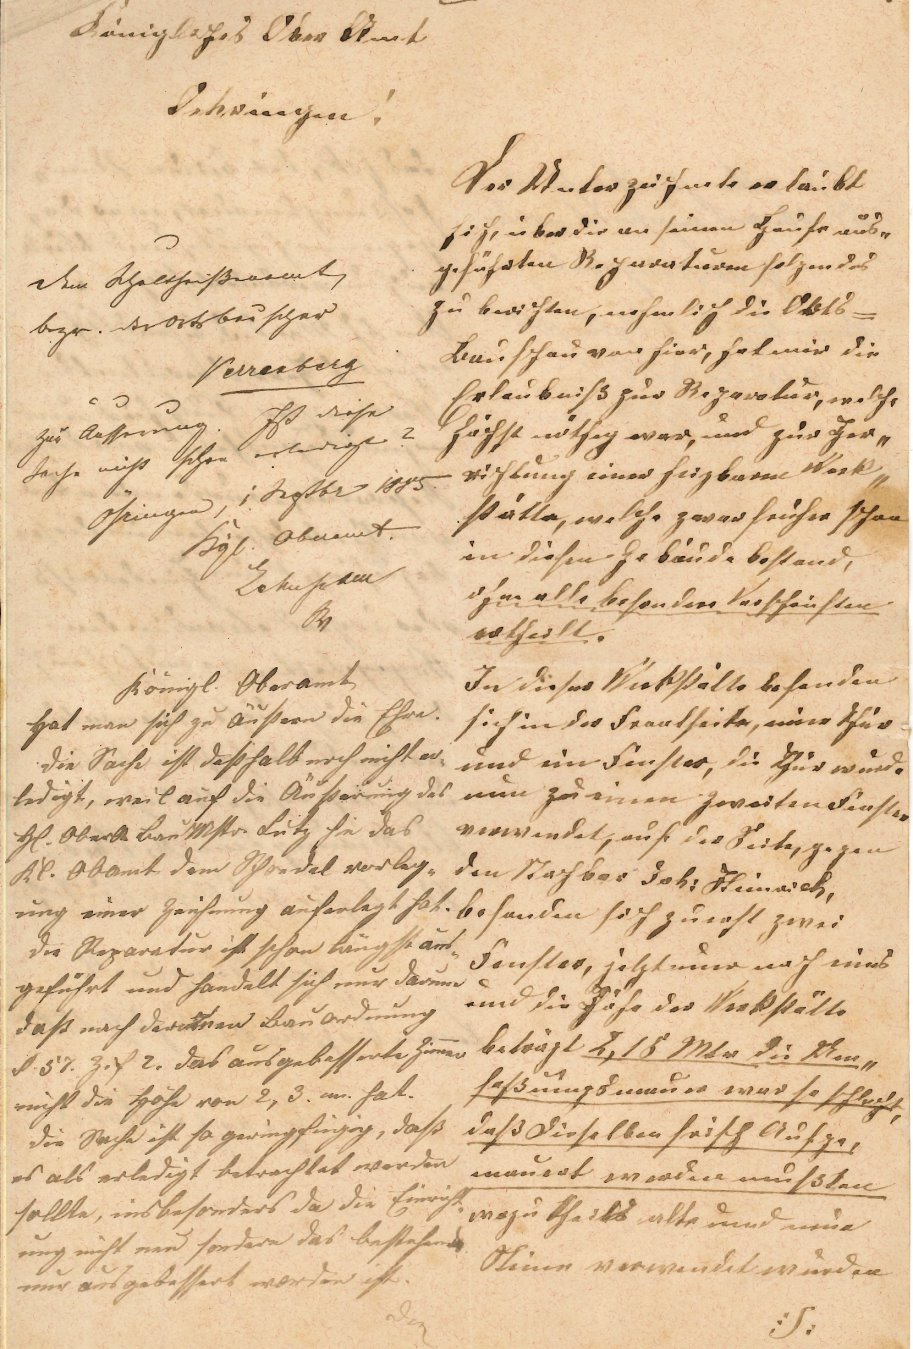 Königliches Ober Amt
Oehringen!
Der Unterzeichnete erlaubt
sich, über die an seinem Hause aus„
geführten Reparaturen folgendes
zu berichten, nehmlich die Orts=
Bauschau von hier, hat mir die
Erlaubniß zur Reparatur, welche
höchst nöthig war, und zur Her„
richtung einer heizbaren Werk„
stätte, welche zwar früher schon
in diesem Gebäude bestand,
ohne alle besondere Vorschriften
ertheilt.
In dieser Werkstätte befanden
sich in der Frontseite, eine Thür
und ein Fenster, die Thür wurde
nun zu einem zweiten Fenster
verwendet, auf der Seite, gegen
den Nachbar Joh:
befanden sich zuerst zwei
Fenster, jetzt nur noch eins
und die Höhe der Werkstätte
beträgt 2,18 Mtr die Um„
faßungsmauer war so schlecht,
daß dieselben frisch Aufge„
mauert werden mußten
wozu theils alte und neue
Steine verwendet wurden
:/:
dem Schultheißenamt,
bezw. der Ortsbauschau
Verrenberg
zur Aeusserung. Ist diese
Sache nicht schon erledigt?
Öhringen, 1 Septbr 1885.
Kgl. Oberamt.
Königl. Oberamt
hat man sich zu äußern die Ehre.
die Sache ist deßhalb noch nicht er„
ledigt, weil auf die Äußerung des
H. OberA. BauMstr. Lutz hin das
Kl. Obamt dem vorleg„
ung einer Zeichnung auferlegt hat.
die Reparatur ist schon längst aus„
geführt und handelt sich nur darum
daß nach der neuen Bauordnung
§. 57. Zif 2. das ausgebesserte Zimmer
nicht die Höhe von 2,3. m. hat.
die Sache ist so geringfügig, daß
es als erledigt betrachtet werden
sollte, insbesonders da die Einricht„
ung nicht neu sondern das bestehende
nur ausgebessert worden ist.